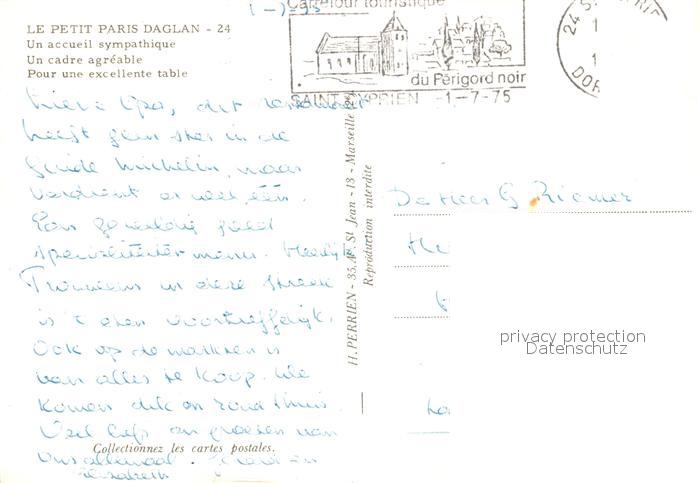 1-7-75
LE PETIT PARIS DAGLAN - 24
Un accueil sympathique
Un cadre agréable
Pour une excellente table
Carrefour touristique
du Périgord noir
SAINT CYPRIEN -1-7-75
24 S
1
1
DOR
Lieve Opa, dit restaurant
heeft geen ster in de
Guide Michelin, maar
verdient er wel één.
Een geweldig goed
specialiteiten menu. Heerlijk
in deze streek
is 't eten voortreffelijk.
Ook op de markten is
van alles te koop. We
komen dik en rond thuis.
Veel liefs en groeten van
ons allemaal.
Elisabeth
Collectionnez les cartes postales.
H. PERRIEN - 35, Av. St Jean - 13 - Marseille
Reproduction interdite
De Heer G
privacy protection
Datenschutz